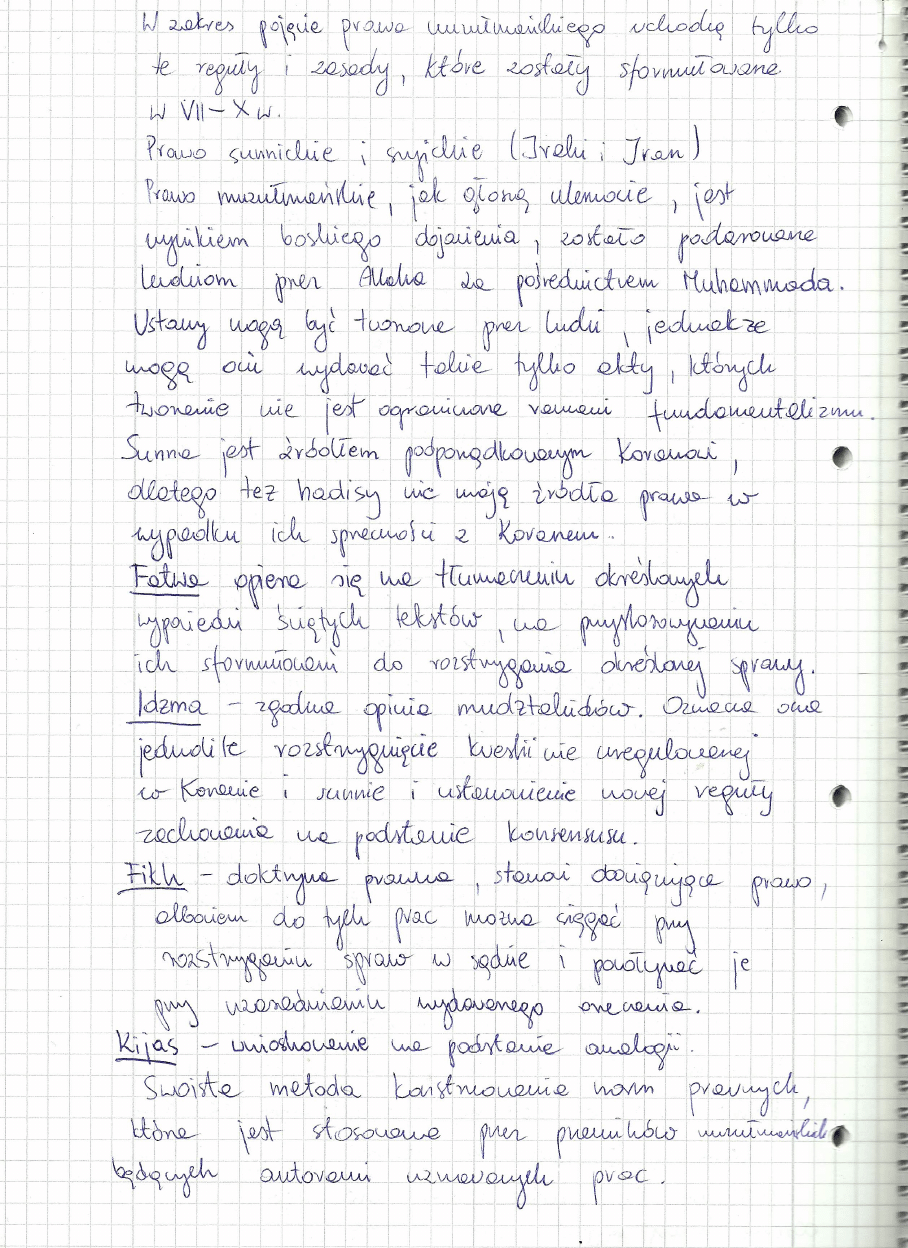 W zakres pojęcie prawa muzułmańskiego wchodzą tylko
te reguły i zasady, które zostały sformułowane
w VII – X w.
Prawo sunnickie i szyickie (Irak i Iran)
Prawo muzułmańskie, jak głoszą ulemowie, jest
wynikiem boskiego objawienia, zostało podarowane
ludziom przez Allaha za pośrednictwem Muhammada.
Ustawy mogą być tworzone przez ludzi, jednakże
mogą oni wydawać takie tylko akty, których
tworzenie nie jest ograniczone ramami fundamentalizmu.
Sunna jest źródłem podporządkowanym Koranowi,
dlatego też hadisy nie mają źródła prawa w
wypadku ich sprzeczności z Koranem.
Fatwa opiera się na tłumaczeniu określonych
wypowiedzi świętych tekstów, na przystosowywaniu
ich sformułowań do rozstrzygania określonej sprawy.
Idżma – zgodna opinia mudżtahidów. Oznacza ona
jednolite rozstrzygnięcie kwestii nie uregulowanej
w Koranie i sunnie i ustanowienie nowej reguły
zachowania na podstawie konsensusu.
Fikh – doktryna prawna, stanowi obowiązujące prawo,
albowiem do tych prac można sięgać przy
rozstrzyganiu spraw w sądzie i powoływać je
przy uzasadnieniu wydawanego orzeczenia.
Kijas – wnioskowanie na podstawie analogii.
Swoista metoda konstruowania norm prawnych,
która jest stosowana przez prawników muzułmańskich
będących autorami uznawanych prac.